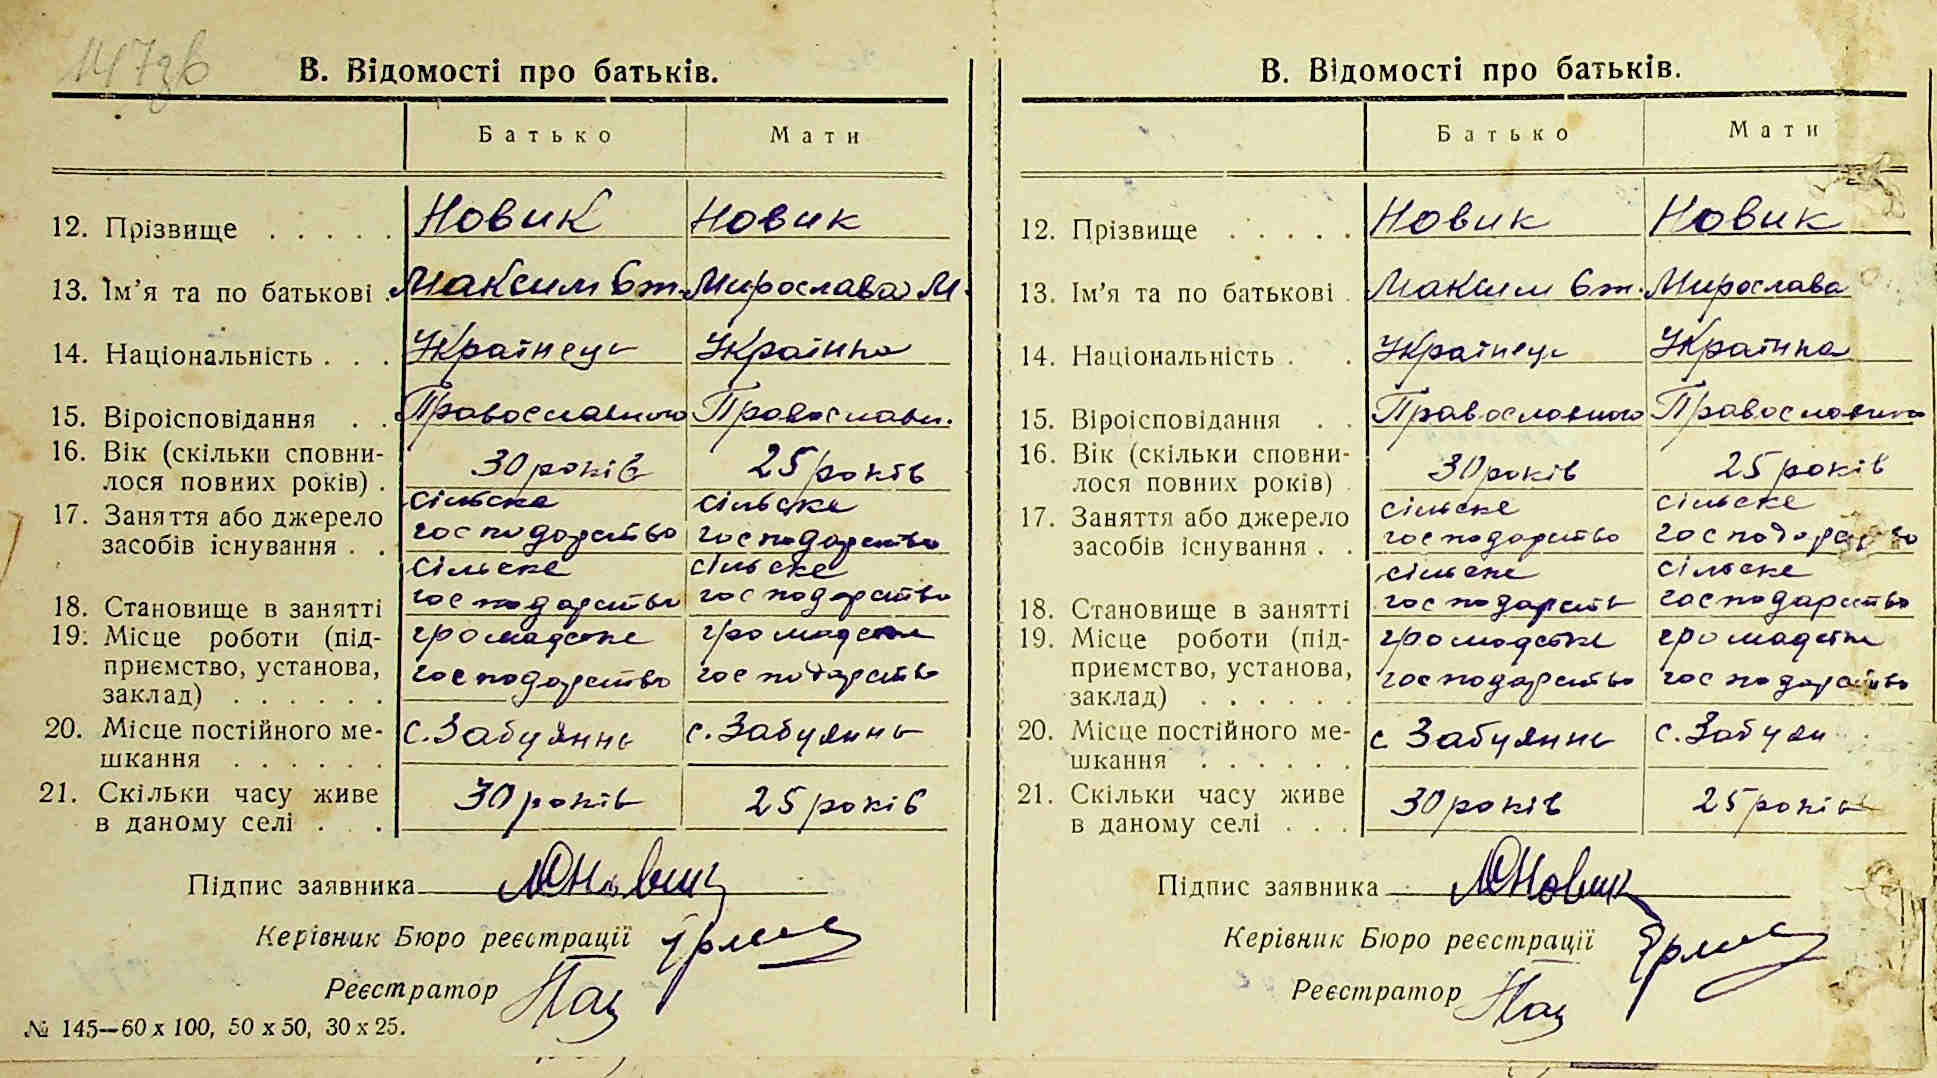 147зв
В. Відомості про батьків.
Батько Мати
12. Прізвище . . . . . Новик Новик
13. Ім’я та по батькові . Максим Єт. Мирослава М.
14. Національність . . . Українець Українка
15. Віроісповідання . . Православного Православн.
16. Вік (скільки сповни-
лося повних років) . 30 років 25 років
17. Заняття або джерело сільське сільське
засобів існування . . господарство господарство
сільске сільске
18. Становище в занятті господарство господарство
19. Місце роботи (під- громадське громадське
приємство, установа, господарство господарство
заклад) . . . . . .
20. Місце постійного ме- с. Забуянне с. Забуянне
шкання . . . . . .
21. Скільки часу живе 30 років 25 років
в даному селі . . .
Підпис заявника МНовик
Керівник Бюро реєстрації
Реєстратор
№ 145—60 x 100, 50 x 50, 30 x 25.
В. Відомості про батьків.
Батько Мати
12. Прізвище . . . . . Новик Новик
13. Ім’я та по батькові . Максим Єт. Мирослава
14. Національність . . Українець Українка
15. Віроісповідання . . Православного Православного
16. Вік (скільки сповни-
лося повних років) . 30 років 25 років
17. Заняття або джерело сільске сільске
засобів існування . . господарство господарство
сільске сільске
18. Становище в занятті господарств господарство
19. Місце роботи (під- громадське громадське
приємство, установа, господарство господарство
заклад) . . . . . .
20. Місце постійного ме- с Забуянне с. Забуян
шкання . . . . . .
21. Скільки часу живе 30 років 25 років
в даному селі . . .
Підпис заявника МНовик
Керівник Бюро реєстрації
Реєстратор